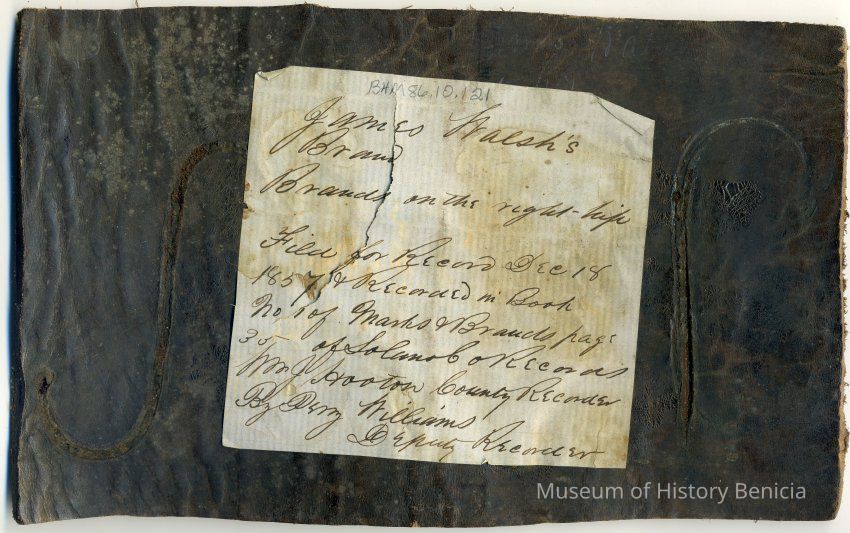 BHM86.10.121
James Walsh's
Brand
Brands on the right-hip
Filed for Record Dec 18
1857 & Recorded in Book
No 1 of Marks & Brands page
35 of Solano Co Records
Wm Hooton County Recorder
By Williams
Deputy Recorder
Museum of History Benicia